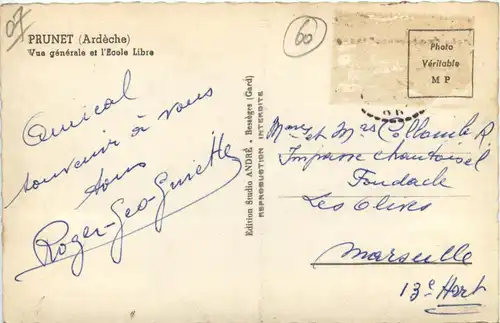 07
PRUNET (Ardèche)
Vue générale et l'Ecole Libre
60
Photo
Véritable
M P
Amical
souvenir à vous
tous
Roger-Geo-Ginette
Edition Studio ANDRÉ - Bessèges (Gard)
REPRODUCTION INTERDITE
et Mrs Collomb R.
Impasse Chantoisel
Les Olives
Marseille
13e